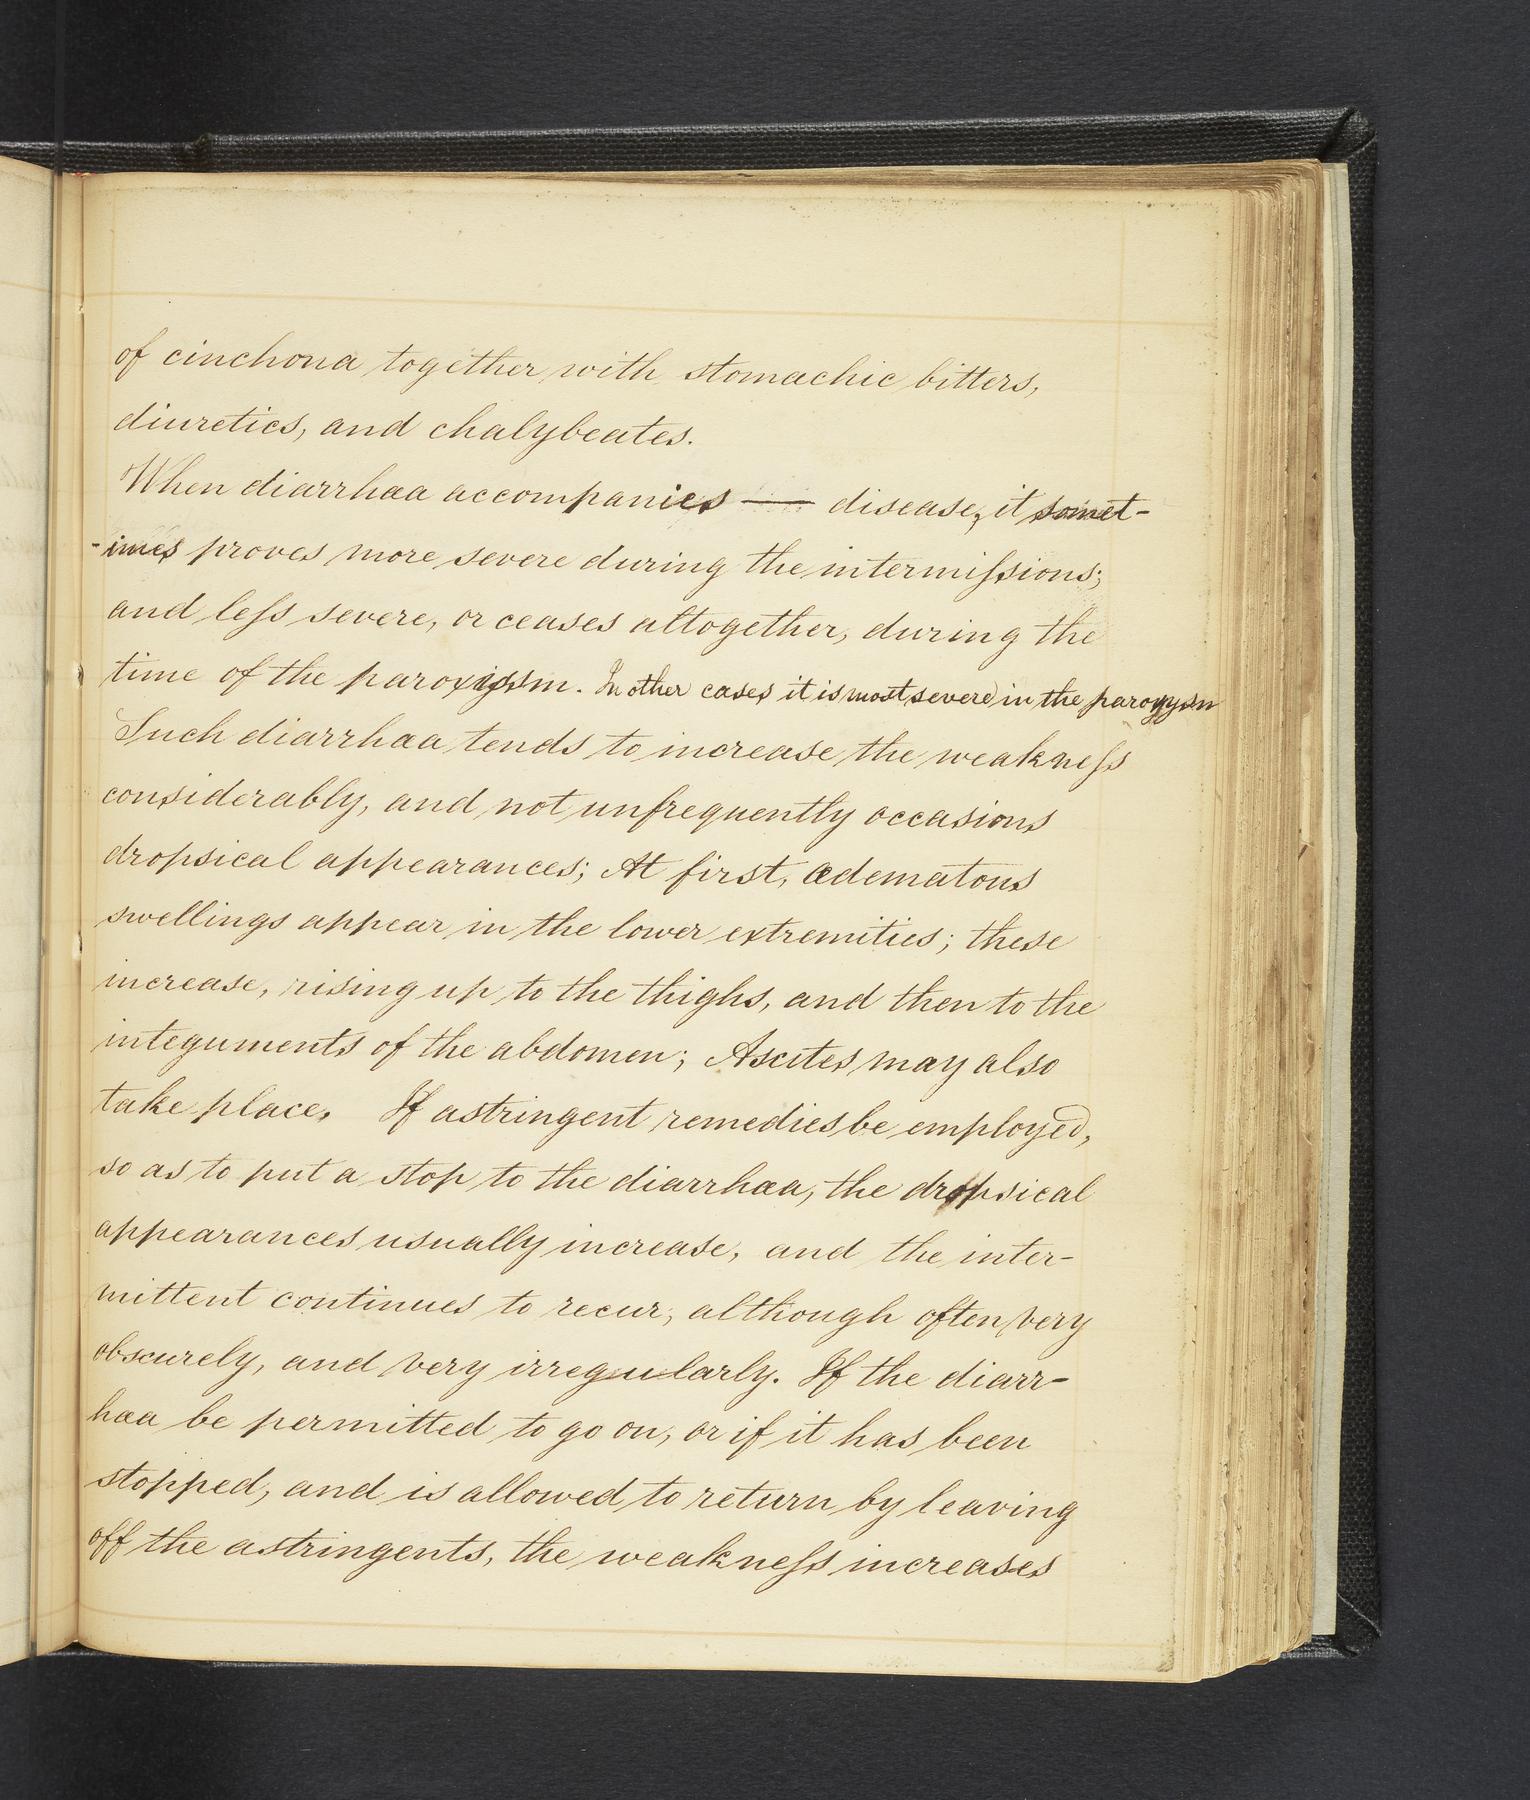 of cinchona together with stomachic bitters,
diuretics, and chalybeates.
When diarrhœa accompanies —— disease, it somet-
-imes proves more severe during the intermiſsions;
and leſs severe, or ceases altogether, during the
time of the paroxysm. In other cases it is most severe in the paroxysm
Such diarrhœa tends to increase the weakneſs
considerably, and not unfrequently occasions
dropsical appearances; At first, œdematous
swellings appear in the lower extremities; these
increase, rising up to the thighs, and then to the
integuments of the abdomen; Ascites may also
take place. If astringent remedies be employed,
so as to put a stop to the diarrhœa, the dropsical
appearances usually increase, and the inter-
mittent continues to recur, although often very
obscurely, and very irregularly. If the diarr-
hœa be permitted to go on, or if it has been
stopped, and is allowed to return by leaving
off the astringents, the weakneſs increases